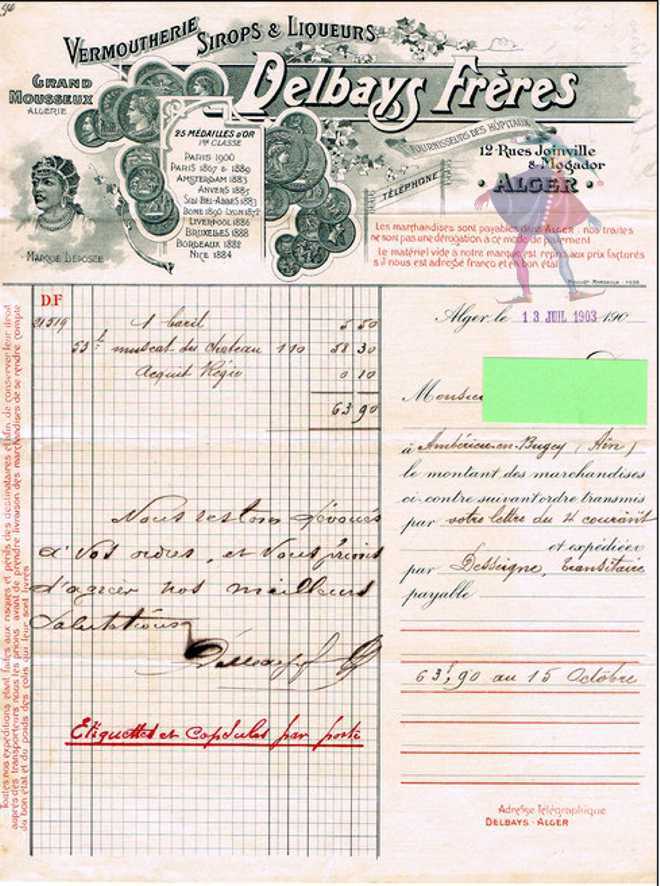 VERMOUTHERIE SIROPS & LIQUEURS
GRAND
MOUSSEUX
ALGÉRIE
Delbays Frères
FOURNISSEURS DES HÔPITAUX
TÉLÉPHONE
12 Rues Joinville
& Mogador
ALGER
25 MÉDAILLES D'OR
1re CLASSE
PARIS 1900
PARIS 1867 & 1889
AMSTERDAM 1883
ANVERS 1885
SIDI BEL-ABBÈS 1883
BONE 1890 LYON 1872
LIVERPOOL 1886
BRUXELLES 1888
BORDEAUX 1882
NICE 1884
MARQUE DÉPOSÉE
Les marchandises sont payables dans ALGER : nos traites
ne sont pas une dérogation à ce mode de paiement
Le matériel vide à notre marque est repris aux prix facturés
s'il nous est adressé franco et en bon état
D.F
Alger, le 13 JUIL 1903 190
21519 1 baril 5 50
53 l muscat du chateau 110 58 30
acquit Régie 0 10
63 90
Monsieu
à Ambérieu-en-Bugey (Ain)
le montant des marchandises
ci contre suivant ordre transmis
par votre lettre du 4 courant
et expédiées
par Desseigne, transitaire
payable
63f,90 au 15 Octobre
Nous restons dévoués
à vos ordres, et vous prions
d'agréer nos meilleurs
salutations
Etiquettes et capsules par poste
Toutes nos expéditions étant faites aux risques et périls des destinataires et afin de conserver leur droit
auprès des transporteurs nous les prions avant de prendre livraison des marchandises de se rendre compte
du bon état et du poids des colis qui leur sont livrés
Adresse Télégraphique
DELBAYS - ALGER